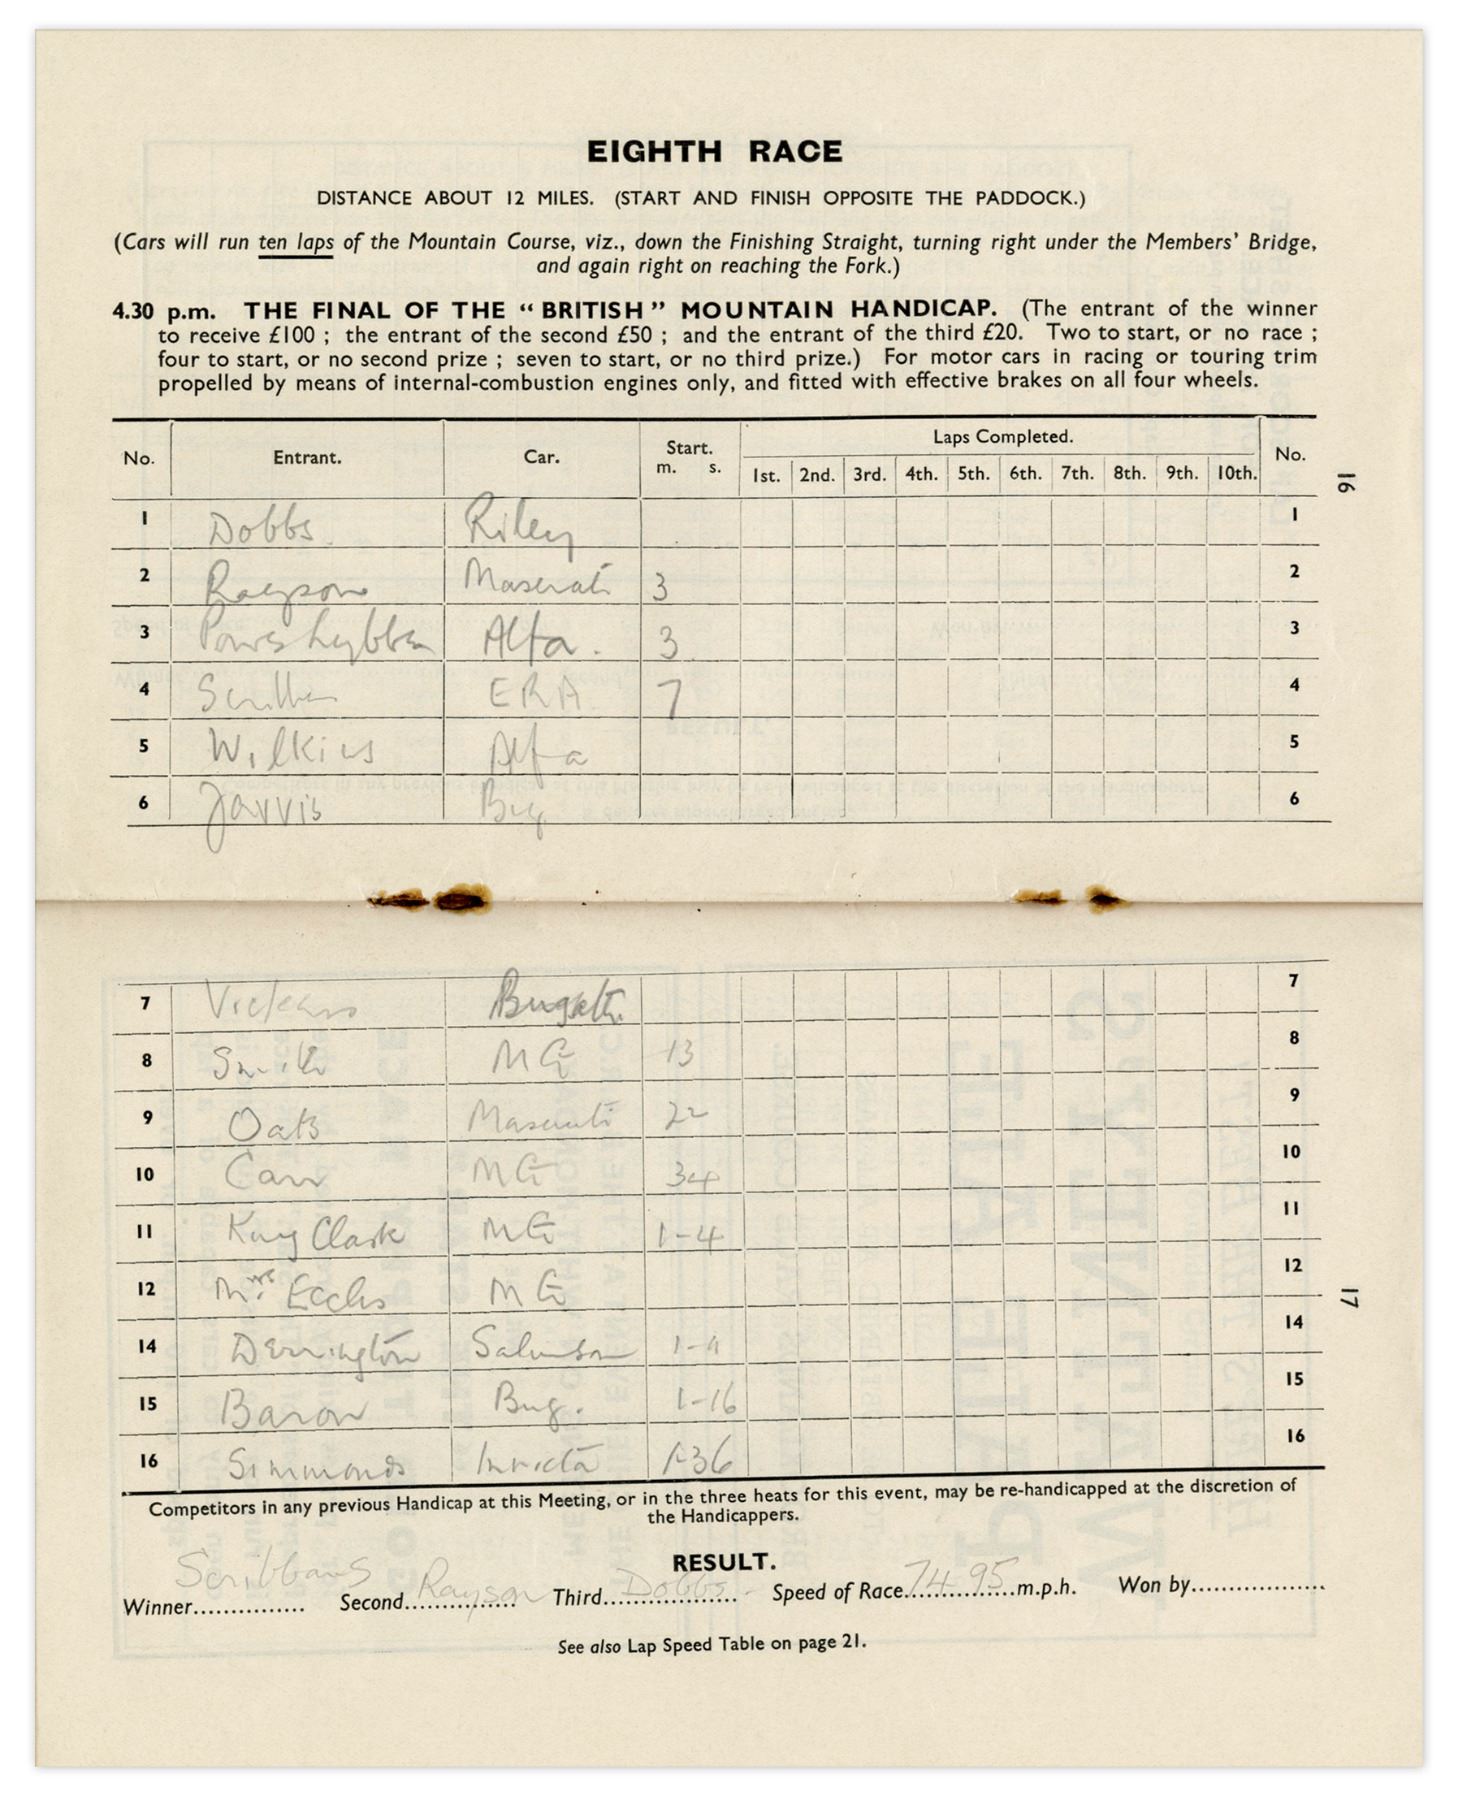 EIGHTH RACE
DISTANCE ABOUT 12 MILES. (START AND FINISH OPPOSITE THE PADDOCK.)
(Cars will run ten laps of the Mountain Course, viz., down the Finishing Straight, turning right under the Members' Bridge,
and again right on reaching the Fork.)
4.30 p.m. THE FINAL OF THE “BRITISH” MOUNTAIN HANDICAP. (The entrant of the winner
to receive £100 ; the entrant of the second £50 ; and the entrant of the third £20. Two to start, or no race ;
four to start, or no second prize ; seven to start, or no third prize.) For motor cars in racing or touring trim
propelled by means of internal-combustion engines only, and fitted with effective brakes on all four wheels.
No. Entrant. Car. Start. m. s. Laps Completed. No.
1st. 2nd. 3rd. 4th. 5th. 6th. 7th. 8th. 9th. 10th.
1 Dobbs. Riley 1
2 Rayson Maserati 3 2
3 Alfa. 3 3
16
4 ERA 7 4
5 Wilkins Alfa 5
6 Jarvis Bug 6
7 Bugatti 7
8 Smith MG 13 8
9 Oats Maserati 22 9
10 Carr MG 34 10
11 Kay Clark MG 1-4 11
12 Mrs Eccles MG 12
17
14 Derrington Salmson 1-11 14
15 Baron Bug. 1-16 15
16 Simmonds Invicta 1-36 16
Competitors in any previous Handicap at this Meeting, or in the three heats for this event, may be re-handicapped at the discretion of
the Handicappers.
RESULT.
Winner Scribbans Second Rayson Third Dobbs Speed of Race 74.95 m.p.h. Won by
See also Lap Speed Table on page 21.